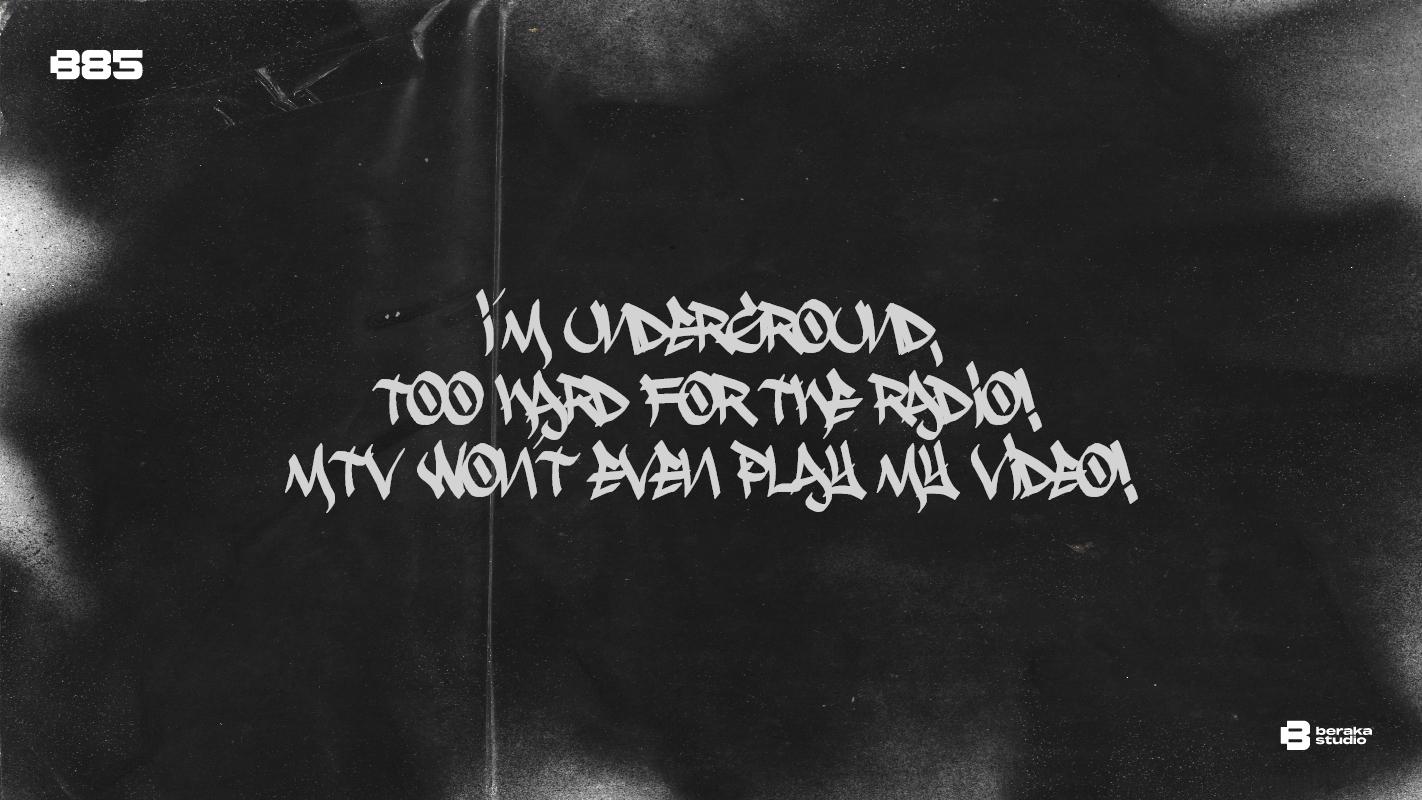 B85
I'M UNDERGROUND,
TOO HARD FOR THE RADIO!
MTV WON'T EVEN PLAY MY VIDEO!
beraka
studio